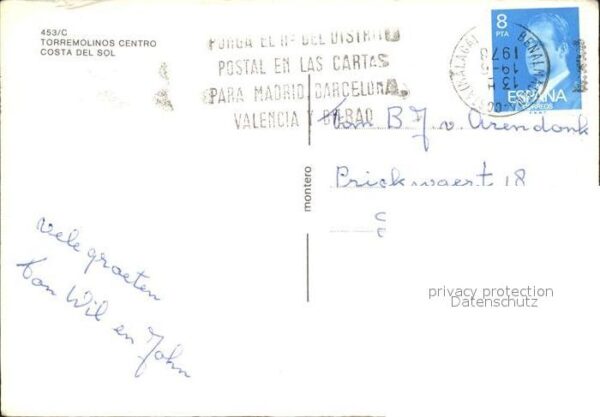 453/C
TORREMOLINOS CENTRO
COSTA DEL SOL
PONGA EL Nº DEL DISTRITO
POSTAL EN LAS CARTAS
PARA MADRID, BARCELONA,
VALENCIA Y BILBAO
8
PTA
ESPAÑA
CORREOS
BENALMADENA
(MALAGA)
13 H
19-5
1978
montero
B J v. Arendonk
Prickwaert 18
vele groeten
van Wil en John
privacy protection
Datenschutz